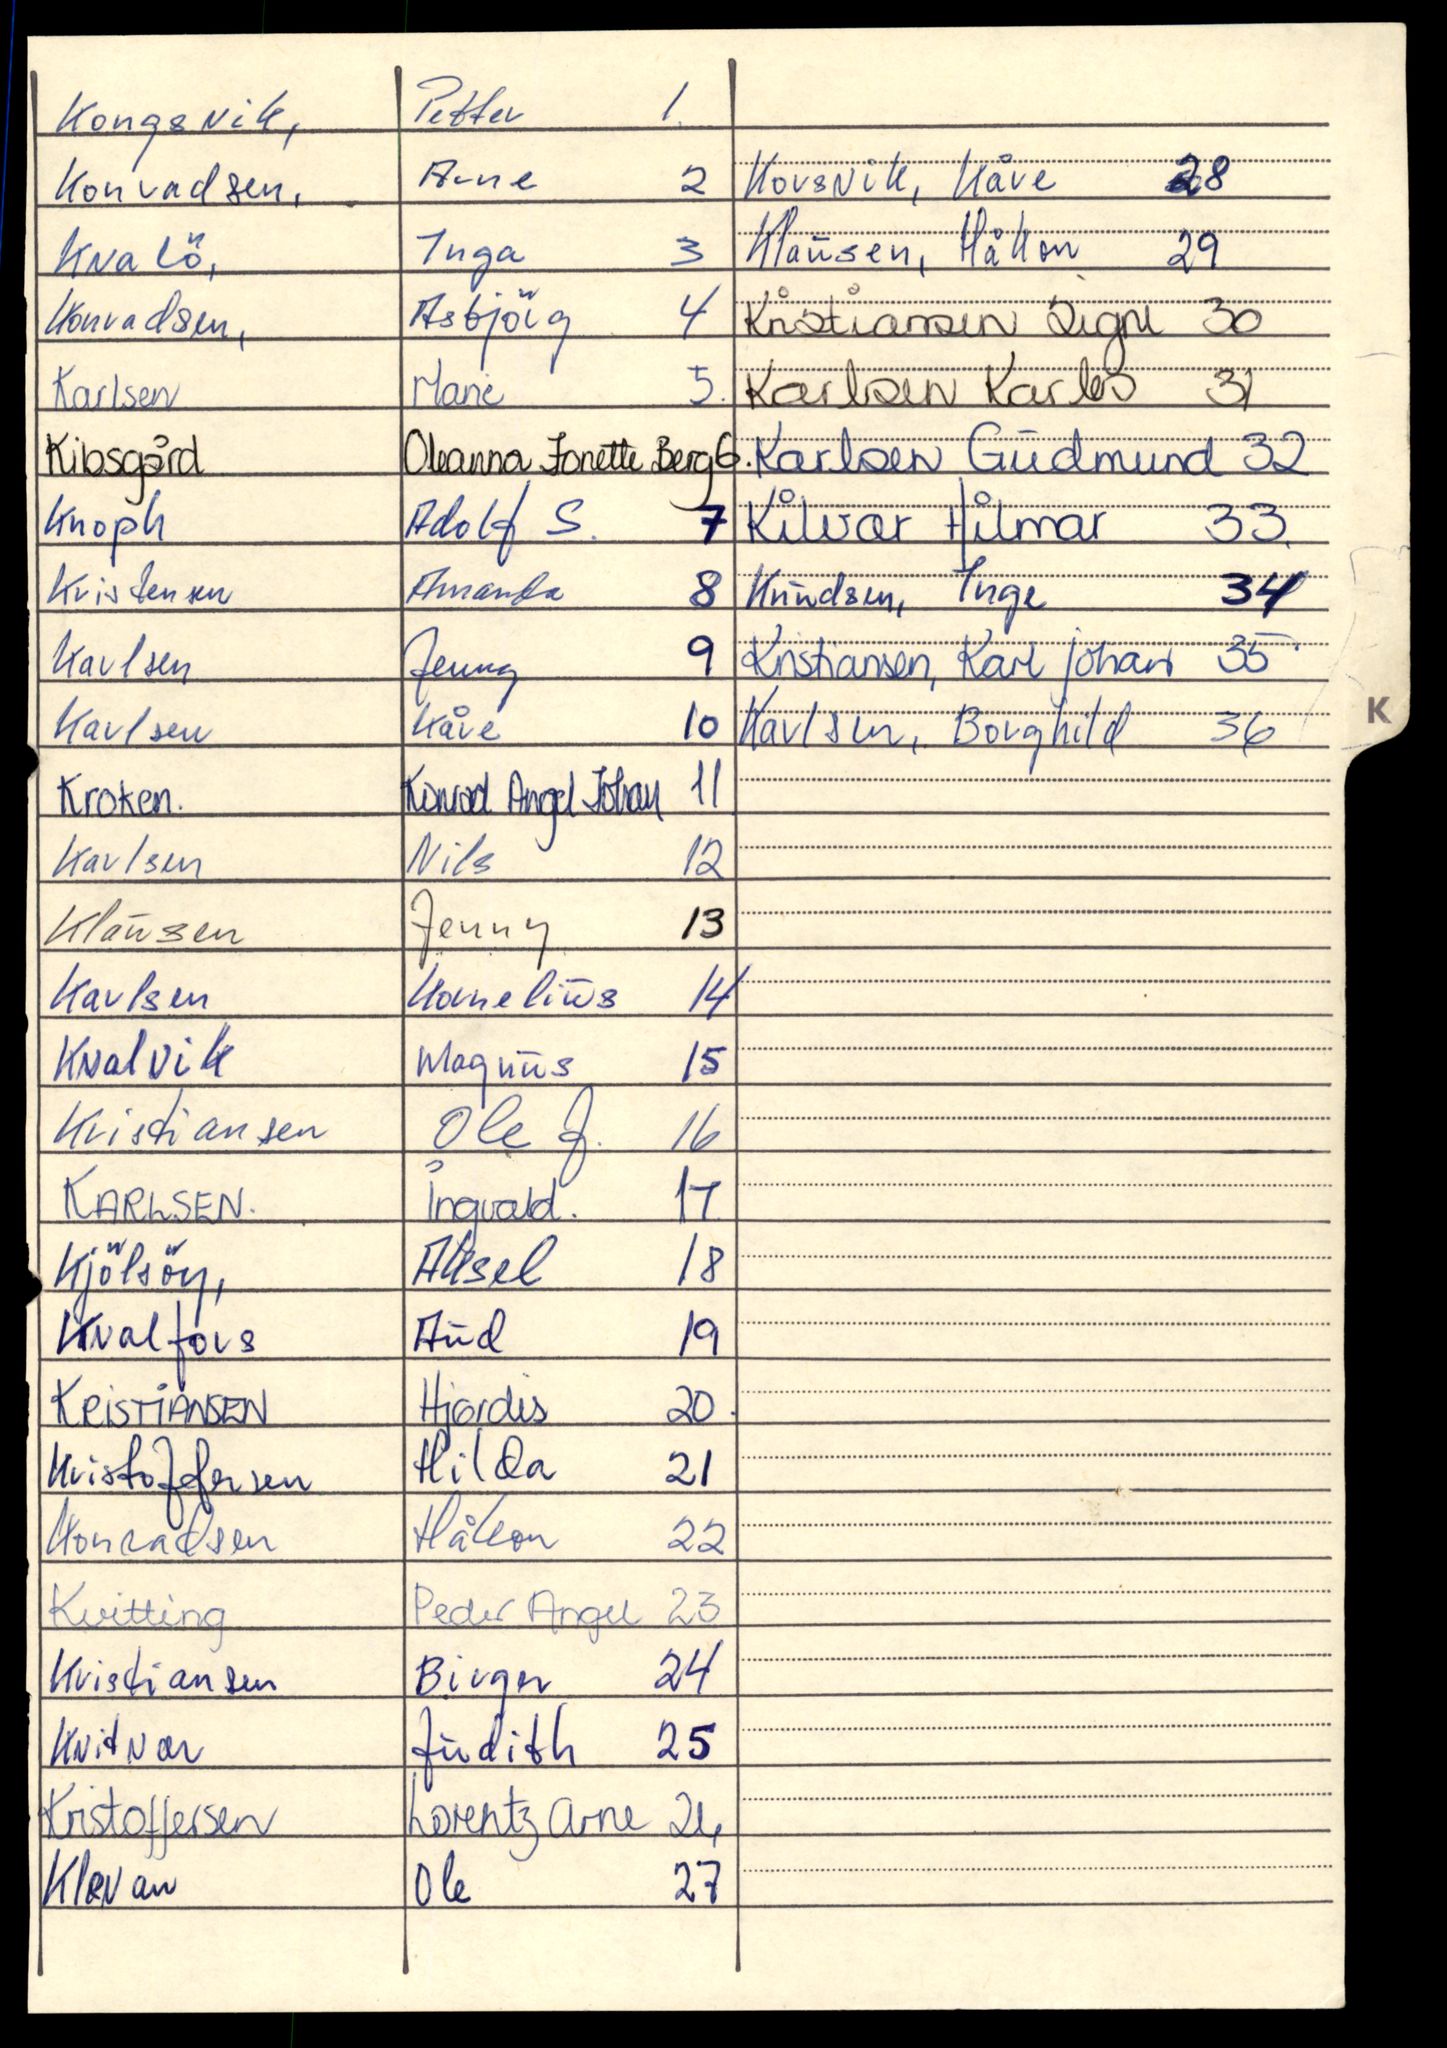 Kongsvik, Petter 1.
Konradsen, Arne 2
Kvalö, Inga 3
Konradsen, Asbjörg 4
Karlsen Marie 5.
Kibsgård Oleanna Jonette Berg 6.
Knoph Adolf S. 7
Kristensen Amanda 8
Karlsen Jenny 9
Karlsen Kåre 10
Kroken. Konrad Angel Johan 11
Karlsen Nils 12
Klaŭsen Jenny 13
Karlsen Korneliŭs 14
Kvalvik Magnŭs 15
Kristiansen Ole J. 16
KARLSEN. Ingvald. 17
Kjölsöy, Aksel 18
Kvalfors Aŭd 19
KRISTIANSEN Hjørdis 20.
Kristoffersen Hilda 21
Konradsen Håkon 22
Kvitting Peder Angel 23
Kristiansen Birger 24
Kvitvær Jŭdith 25
Kristoffersen Lorentz Arne 26
Klævan Ole 27
Korsvik, Kåre 28
Klaŭsen, Håkon 29
Kristiansen Signe 30
Karlsen Karlos 31
Karlsen Gŭdmund 32
Kilvær Hilmar 33.
Knŭdsen, Inge 34
Kristiansen, Karl Johan 35
Karlsen, Borghild 36
K